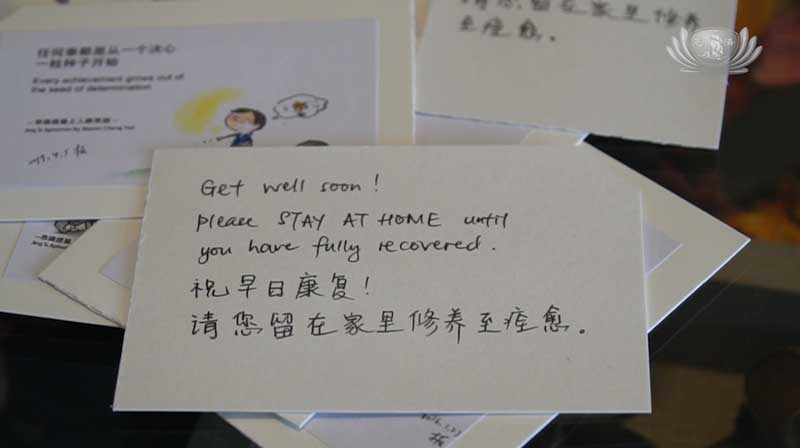 任何事都是从一个决心
一粒种子开始
Every achievement grows out of
the seed of determination
Jing Si Aphorism By Master Cheng Yen
请您留在家里修养
至痊愈。
Get well soon!
please STAY AT HOME until
you have fully recovered.
祝早日康复!
请您留在家里修养至痊愈。